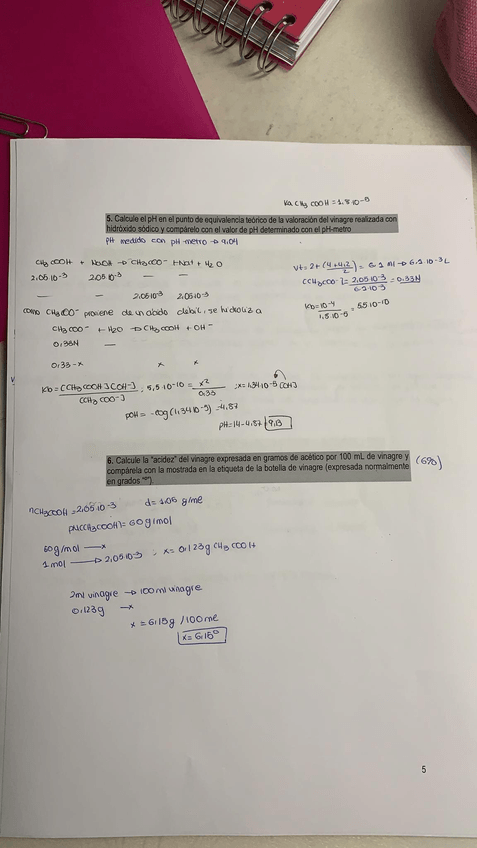 Ka CH3 COOH = 1.8·10-5
5. Calcule el pH en el punto de equivalencia teórico de la valoración del vinagre realizada con
hidróxido sódico y compárelo con el valor de pH determinado con el pH-metro
pH medido con pH-metro → 9,04
CH3 COOH + NaOH → CH3COO- + Na+ + H2O
2,05·10-3 2,05·10-3 — —
— — 2,05·10-3 2,05·10-3
Vt = 2 + (4+4,2/2) = 6.1 ml → 6.1·10-3 L
[CH3COO-] = 2,05·10-3/6.1·10-3 = 0.33N
Kb = 10-14/1,8·10-5 = 5.5·10-10
como CH3COO- proviene de un ácido débil, se hidroliza
CH3COO- + H2O → CH3COOH + OH-
0,33N —
0,33-x x x
Kb = [CH3COOH][OH-]/[CH3COO-] ; 5,5·10-10 = x2/0,33 ; x = 1,34·10-5 [OH-]
pOH = -log (1,34·10-5) = 4,87
pH = 14 - 4,87 = 9,13
6. Calcule la "acidez" del vinagre expresada en gramos de acético por 100 mL de vinagre y
compárela con la mostrada en la etiqueta de la botella de vinagre (expresada normalmente
en grados "º")
(6º)
nCH3COOH = 2,05·10-3 d = 1,05 g/ml
PM(CH3COOH) = 60 g/mol
60 g/mol → x
1 mol → 2,05·10-3 ; x = 0,123 g CH3COOH
2ml vinagre → 100 ml vinagre
0,123g → x
x = 6,15 g / 100 ml
x = 6,15º
5